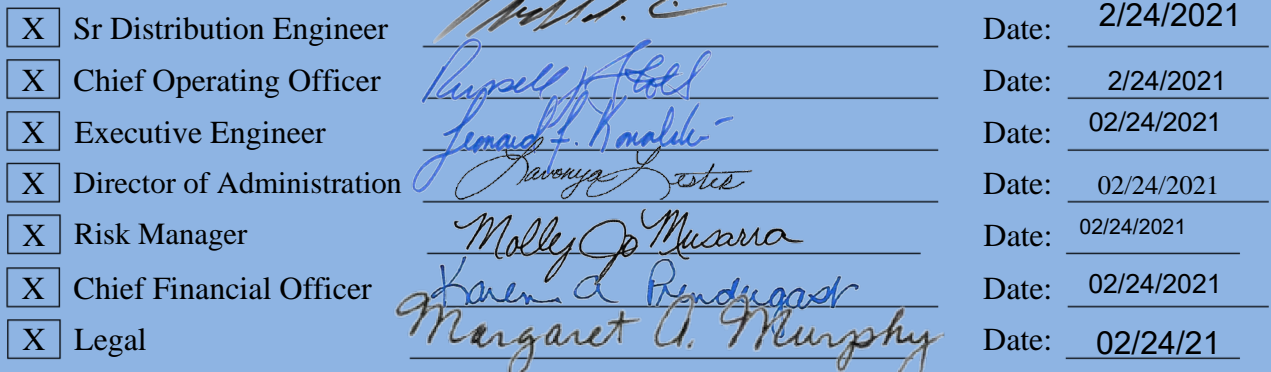 X Sr Distribution Engineer Date: 2/24/2021
X Chief Operating Officer Russell J Stoll Date: 2/24/2021
X Executive Engineer Leonard F. Kowalski Date: 02/24/2021
X Director of Administration Lavonya Lester Date: 02/24/2021
X Risk Manager Molly Jo Musarra Date: 02/24/2021
X Chief Financial Officer Karen A Prendergast Date: 02/24/2021
X Legal Margaret A. Murphy Date: 02/24/21